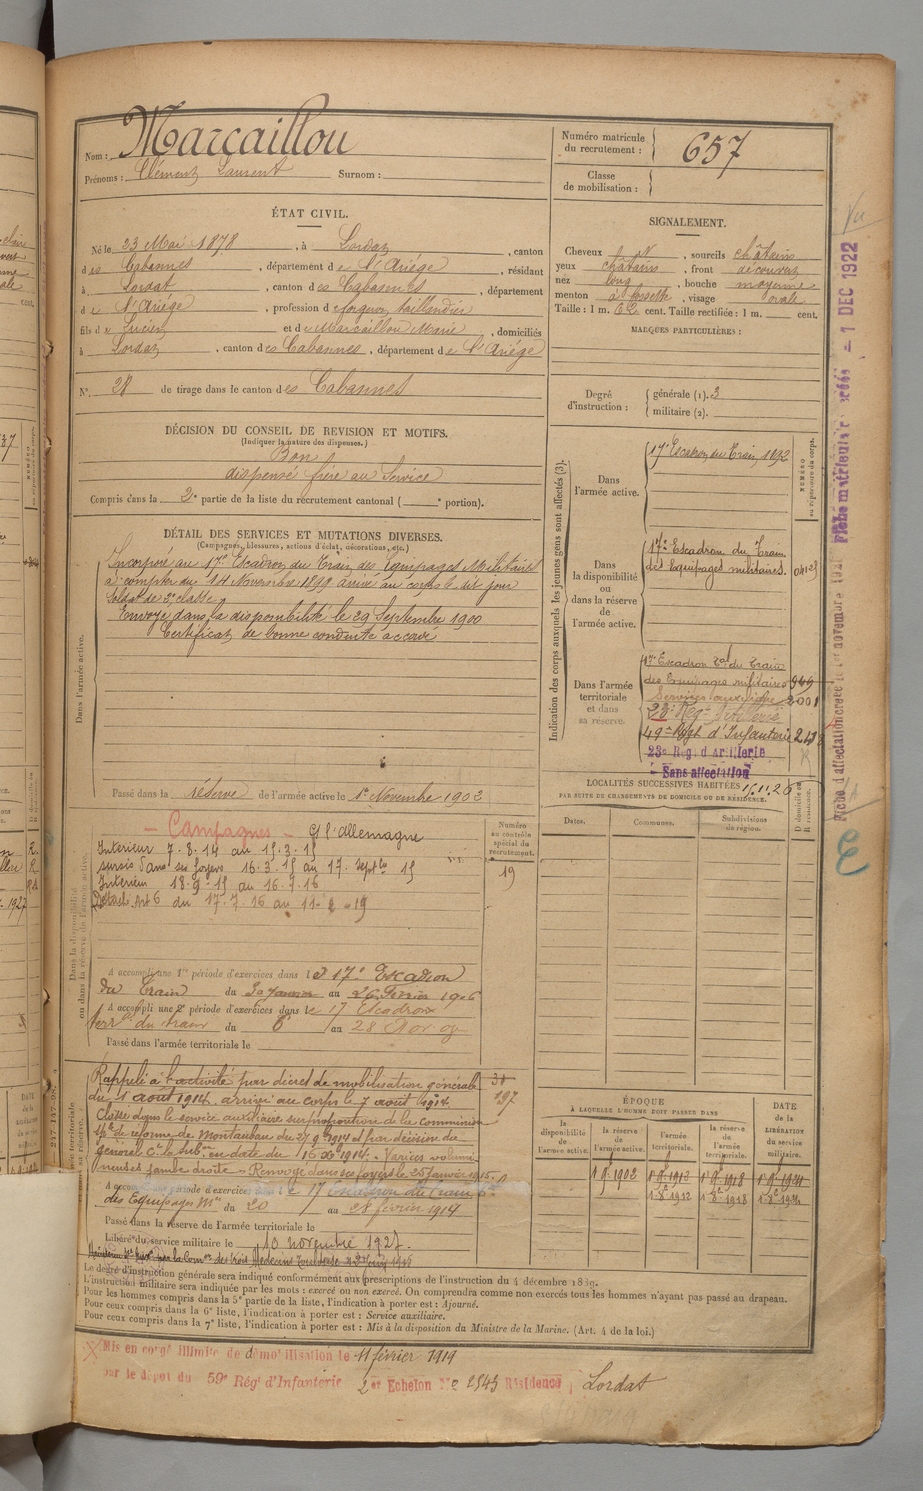 Nom : Marcaillou
Prénoms : Clément Laurent Surnom :
Numéro matricule du recrutement : 657
Classe de mobilisation :
ÉTAT CIVIL.
Né le 23 Mai 1878, à Lordat, canton
des Cabannes, département de l'Ariége, résidant
à Lordat, canton des Cabannes, département
de l'Ariége, profession de forgeron taillandier
fils de Lucien et de Marcaillou Marie, domiciliés
à Lordat, canton des Cabannes, département de l'Ariége
N° 28 de tirage dans le canton des Cabannes
SIGNALEMENT.
Cheveux, sourcils châtains
yeux châtains, front découvert
nez long, bouche moyenne
menton à fossette, visage ovale
Taille : 1 m. 62 cent. Taille rectifiée : 1 m. cent.
MARQUES PARTICULIÈRES :
Degré d'instruction : générale (1). 3
militaire (2).
DÉCISION DU CONSEIL DE REVISION ET MOTIFS.
(Indiquer la nature des dispenses.)
Bon
dispensé frère au Service
Compris dans la 2e partie de la liste du recrutement cantonal ( e portion).
DÉTAIL DES SERVICES ET MUTATIONS DIVERSES.
(Campagnes, blessures, actions d'éclat, décorations, etc.)
Dans l'armée active.
Incorporé au 17e Escadron du Train des Equipages Militaires
à compter du 14 Novembre 1899 arrivé au corps le dit jour
Soldat de 2e classe
Envoyé dans la disponibilité le 29 Septembre 1900
Certificat de bonne conduite accordé
Passé dans la réserve de l'armée active le 1er Novembre 1902
Indication des corps auxquels les jeunes gens sont affectés (3).
Dans l'armée active.
17e Escadron du Train, 1892
NUMÉRO au répertoire du corps.
Dans la disponibilité ou dans la réserve de l'armée active.
17e Escadron du Train
des Equipages militaires.
Dans l'armée territoriale et dans sa réserve.
17e Escadron Tal du Train
des Equipages militaires 949
Services auxiliaires 2001
23e Reg. Artillerie
49e Regt d'Infanterie
23e Reg. d'Artillerie
Sans affectation
LOCALITÉS SUCCESSIVES HABITÉES
PAR SUITE DE CHANGEMENTS DE DOMICILE OU DE RÉSIDENCE.
Dates. Communes. Subdivisions de région.
Campagnes - Ct l'Allemagne
Intérieur 7.8.14 au 15.3.15
sursis dans ses foyers 16.3.15 au 17. Septbre 15
Intérieur 18.9.15 au 16.7.16
du 17.7.16 au 11.2.19
Numéro au contrôle spécial du recrutement.
19
A accompli une 1re période d'exercices dans le 17e Escadron
du Train du 30 Janvier au 26 Février 1906
A accompli une 2e période d'exercices dans le 17 Escadron
Terr. du train du 6 au 28
Passé dans l'armée territoriale le
Rappelé à l'activité par décret de mobilisation générale
du 1 août 1914 arrivé au corps le 7 août 1914
Classé dans le service auxiliaire sur proposition de la commission
spéc. de réforme de Montauban du 27 9bre 1914 et par décision du
Général Ct la Subon en date du 16 Xbre 1914. Varices volumi
neuses jambe droite - Renvoyé dans ses foyers le 25 Janvier 1915.
période d'exercices le 17 Escadron du Train
des Equipages Mres du 20 au 28 février 1914
Passé dans la réserve de l'armée territoriale le
Libéré du service militaire le 10 novembre 1927.
ÉPOQUE
À LAQUELLE L'HOMME DOIT PASSER DANS
la disponibilité de l'armée active. la réserve de l'armée active. l'armée territoriale. la réserve de l'armée territoriale.
DATE de la LIBÉRATION du service militaire.
Le degré d'instruction générale sera indiqué conformément aux prescriptions de l'instruction du 4 décembre 1889.
L'instruction militaire sera indiquée par les mots : exercé ou non exercé. On comprendra comme non exercés tous les hommes n'ayant pas passé au drapeau.
Pour les hommes compris dans la 5e partie de la liste, l'indication à porter est : Ajourné.
Pour ceux compris dans la 6e liste, l'indication à porter est : Service auxiliaire.
Pour ceux compris dans la 7e liste, l'indication à porter est : Mis à la disposition du Ministre de la Marine. (Art. 4 de la loi.)
Mis en congé illimité de démobilisation le 11 février 1919
par le dépot du 59e Rég. d'Infanterie 2er Echelon No 2545 Résidence, Lordat
Vu
1 DEC 1922